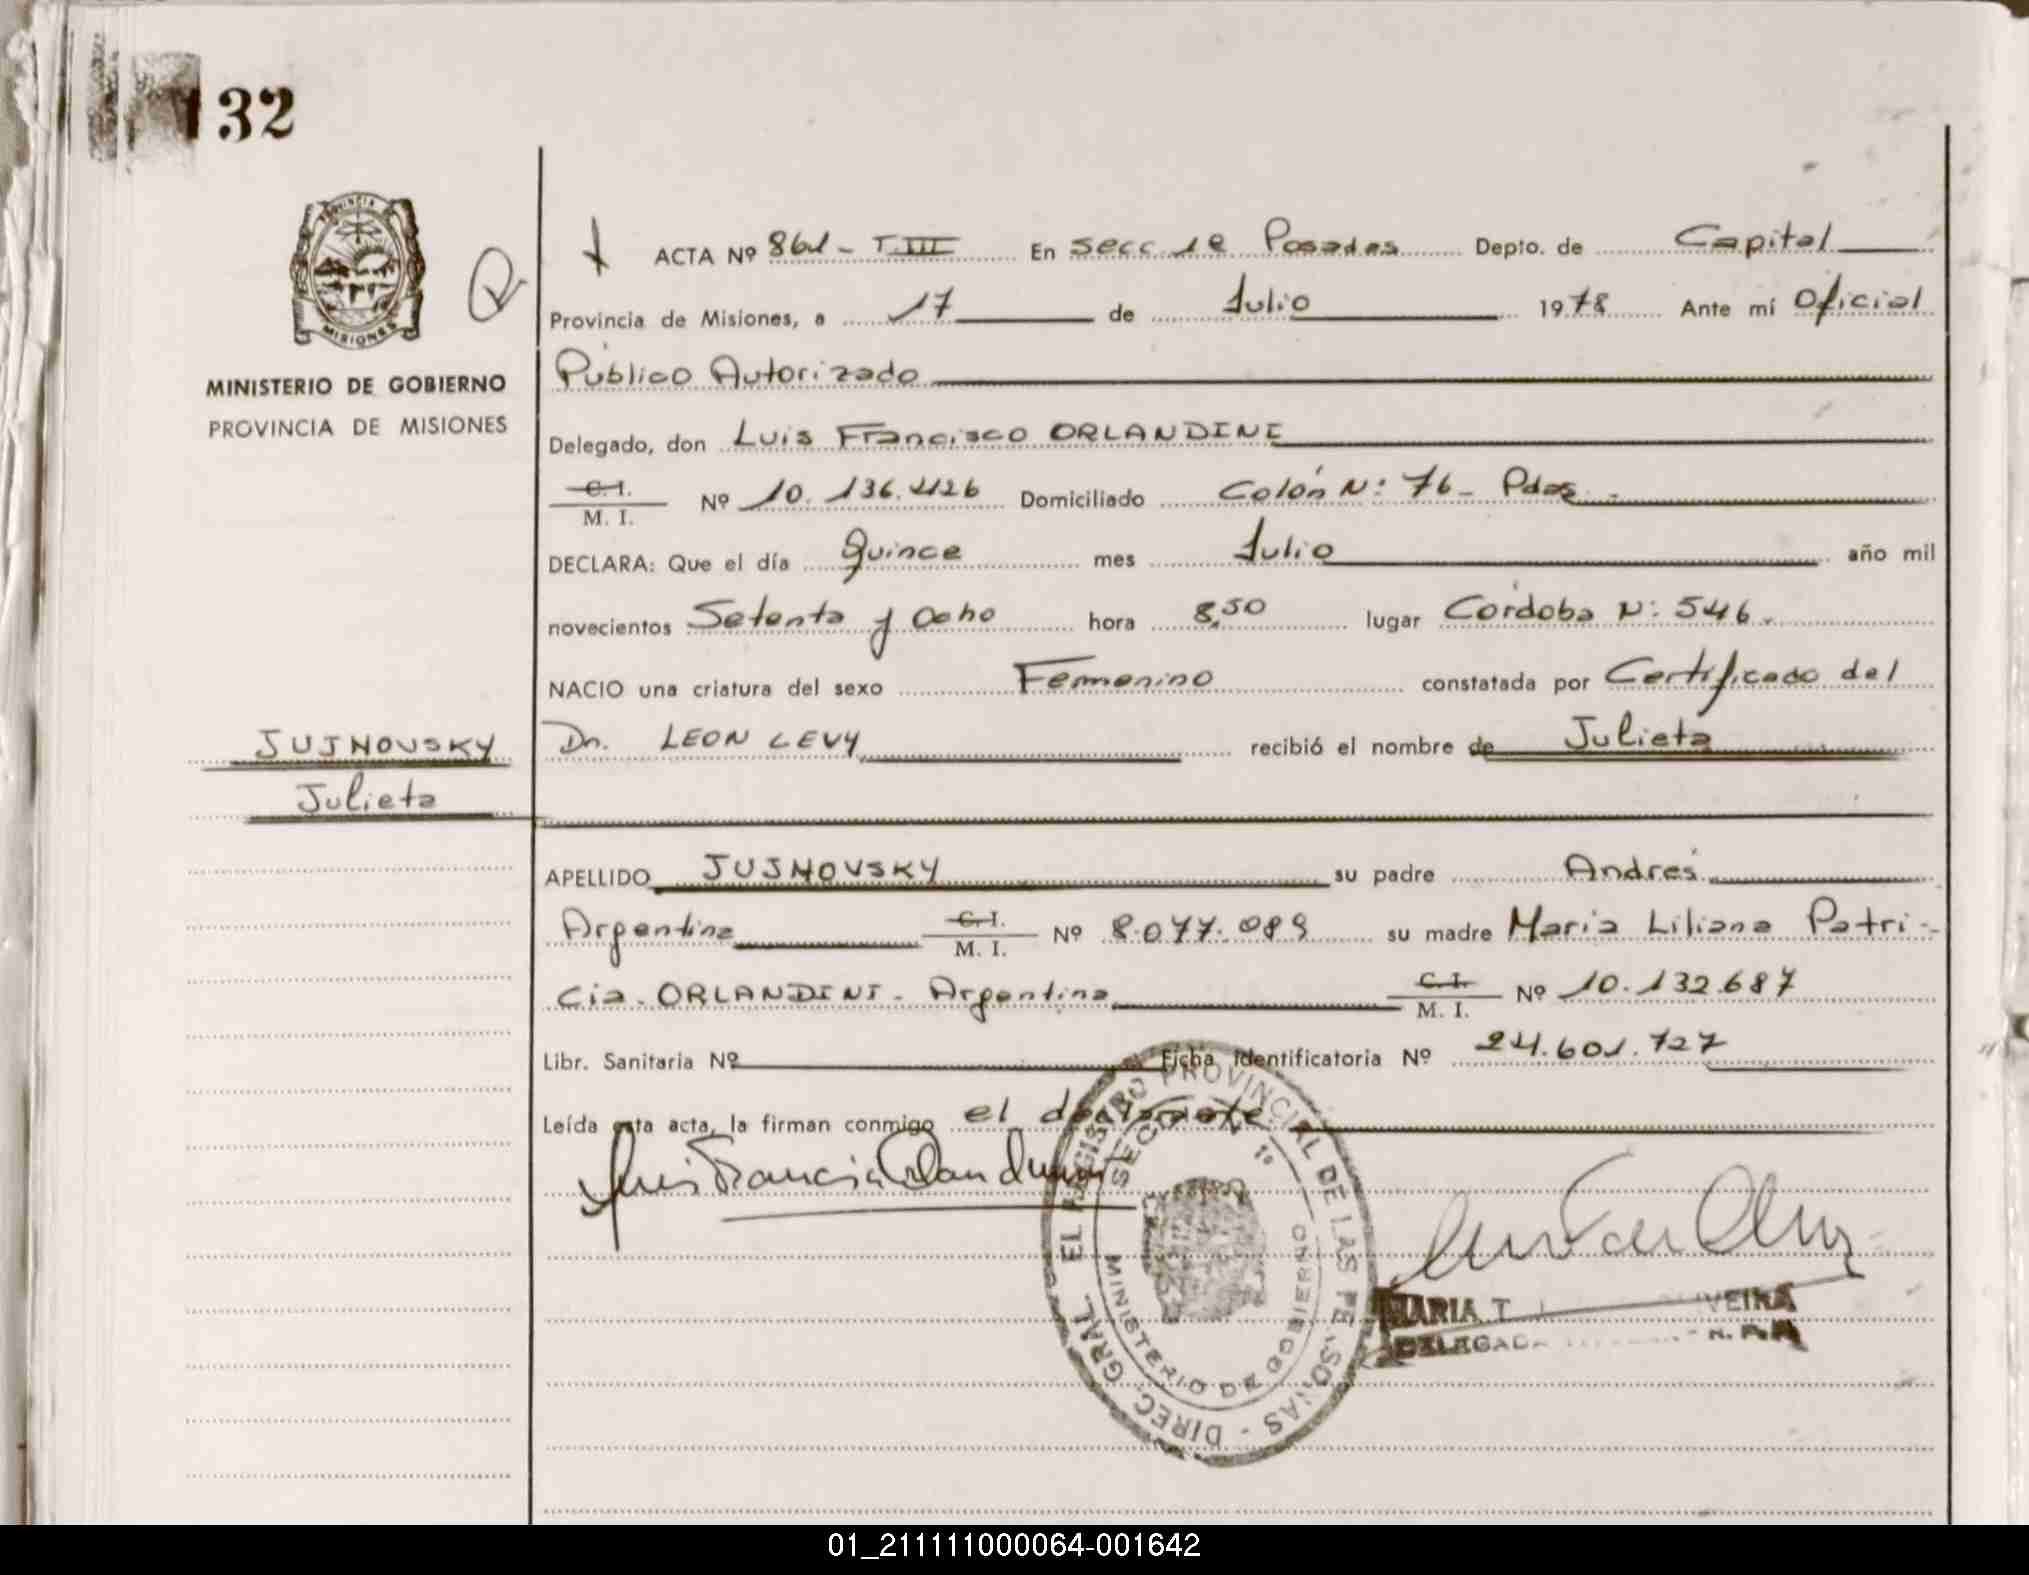 132
PROVINCIA
MISIONES
MINISTERIO DE GOBIERNO
PROVINCIA DE MISIONES
ACTA Nº 861 - T. III En Secc 1ª Posadas Depto. de Capital
Provincia de Misiones, a 17 de Julio 1978 Ante mí Oficial
Público Autorizado
Delegado, don Luis Francisco ORLANDINI
C.I. / M. I. Nº 10.136.426 Domiciliado Colón Nº 76 - Pdas.
DECLARA: Que el día Quince mes Julio año mil
novecientos Setenta y Ocho hora 8,50 lugar Córdoba Nº 546.
NACIO una criatura del sexo Femenino constatada por Certificado del
Dr. LEON LEVY recibió el nombre de Julieta
JUJNOVSKY
Julieta
APELLIDO JUJNOVSKY su padre Andrés
Argentina C.I. / M. I. Nº 8.077.089 su madre María Liliana Patri-
cia ORLANDINI - Argentina C.I. / M. I. Nº 10.132.687
Libr. Sanitaria Nº Ficha Identificatoria Nº 24.601.727
Leída esta acta, la firman conmigo el declarante
Luis Francisco Orlandini
DIREC. GRAL. EL REGISTRO PROVINCIAL DE LAS PERSONAS
SECC. 1º
MINISTERIO DE GOBIERNO
MARIA T. OLIVEIRA
DELEGADA
01_211111000064-001642